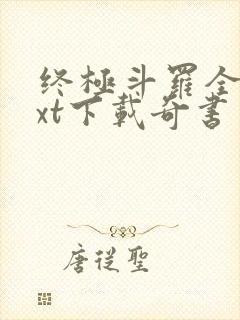 终極斗羅全
xt下載奇書
唐從聖